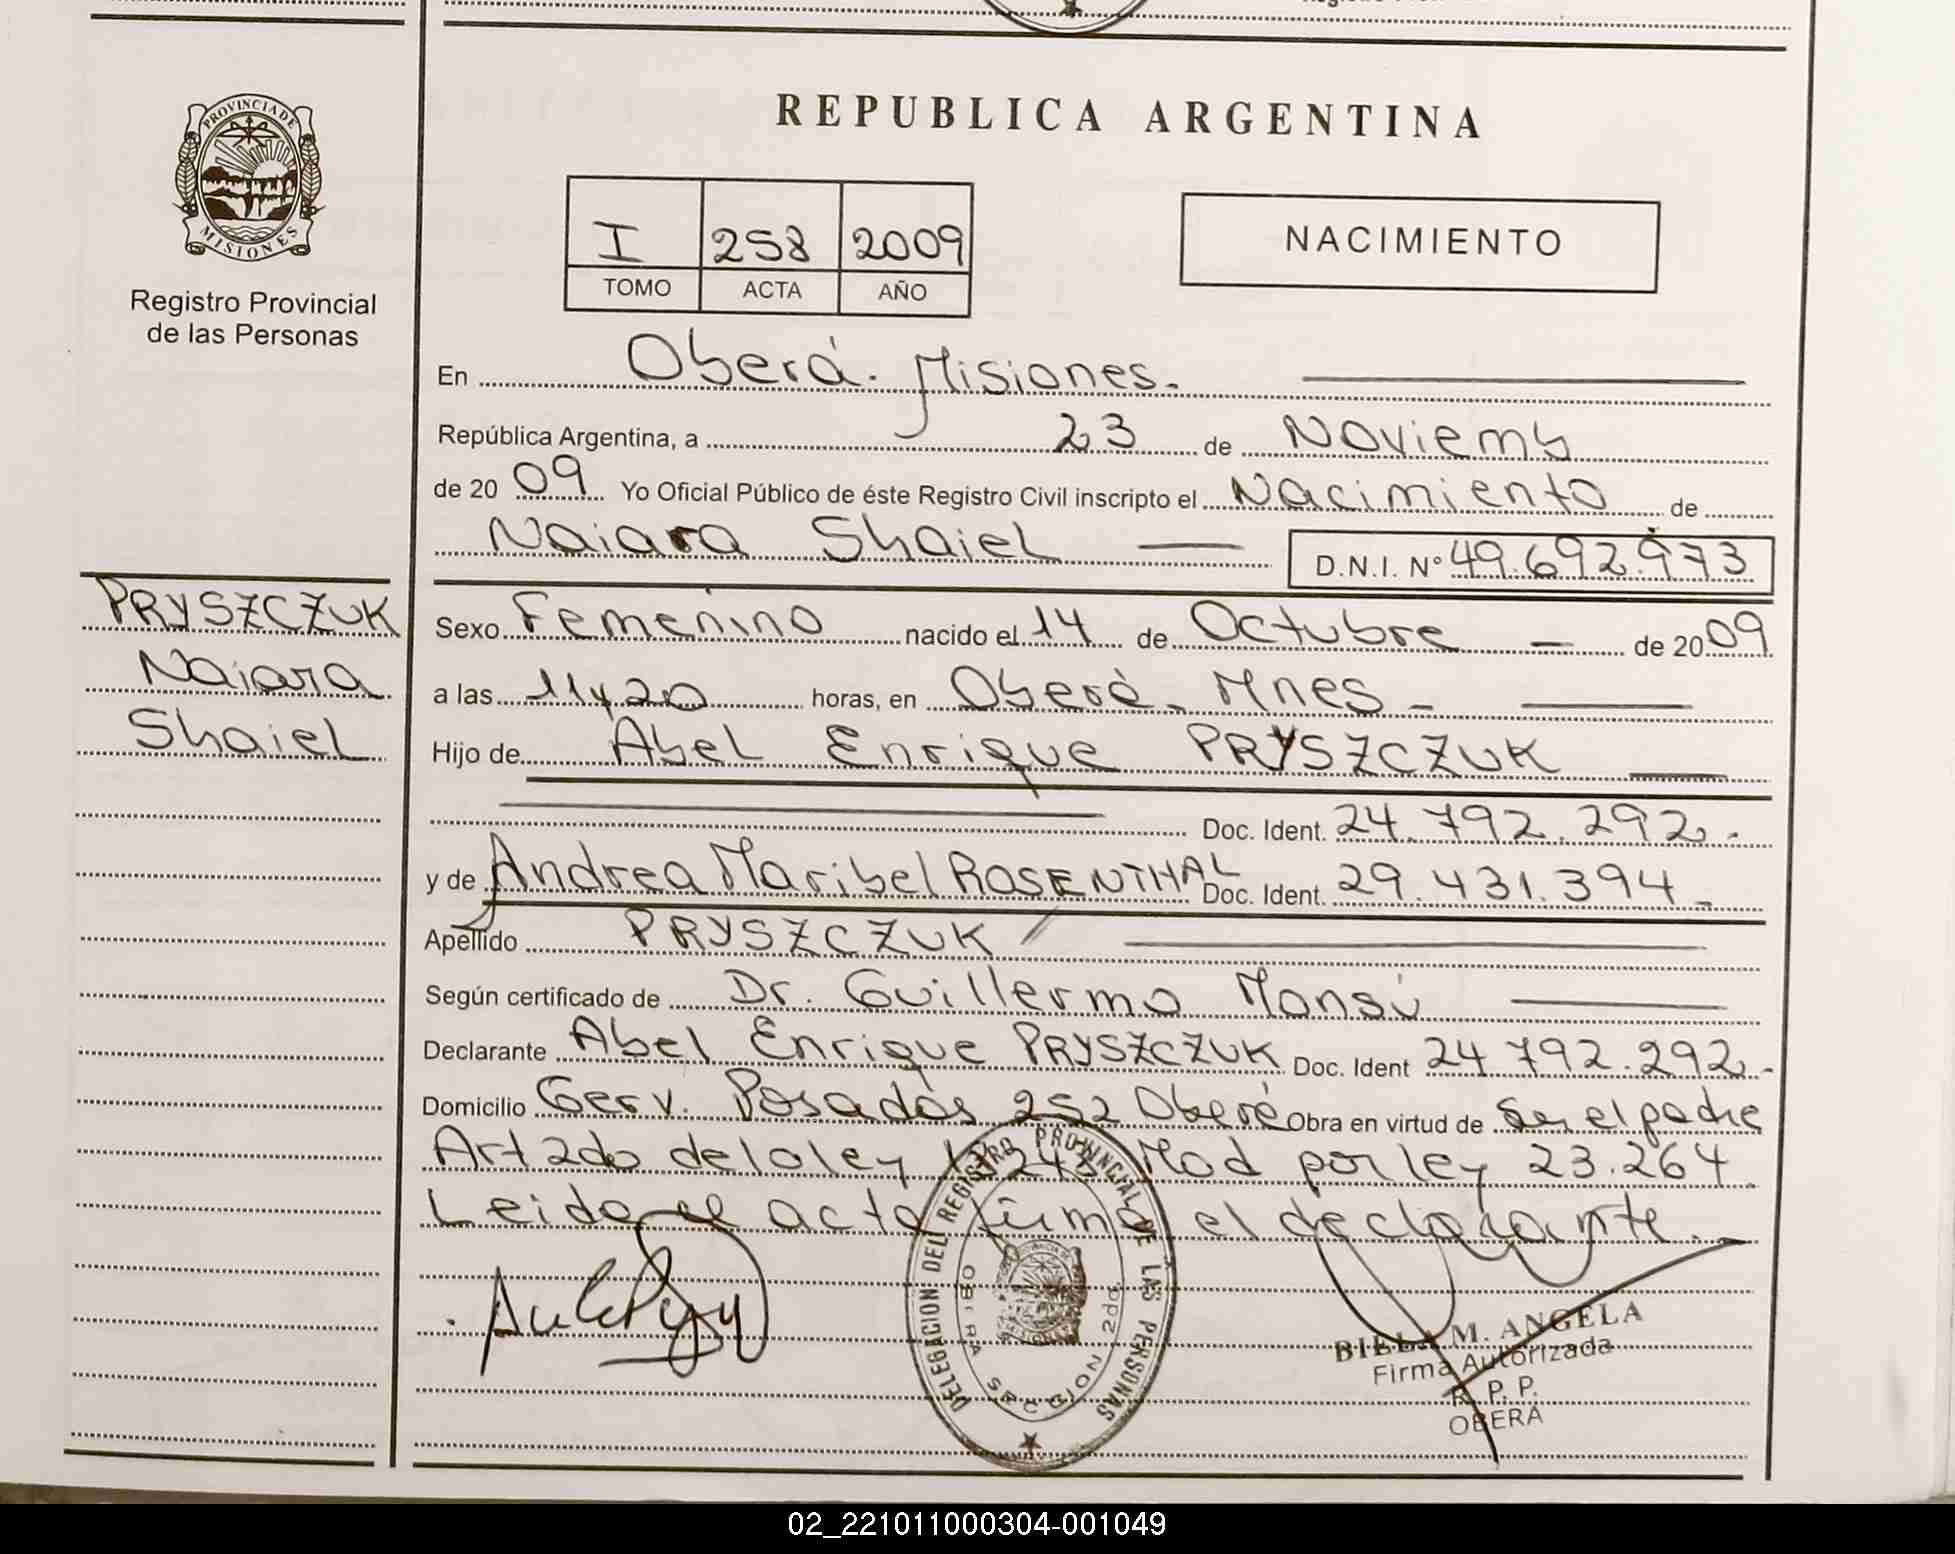 REPUBLICA ARGENTINA
PROVINCIA DE MISIONES
Registro Provincial
de las Personas
I 258 2009
TOMO ACTA AÑO
NACIMIENTO
En Oberá. Misiones.
República Argentina, a 23 de Noviemb
de 20 09 Yo Oficial Público de éste Registro Civil inscripto el Nacimiento de
Naiara Shaiel D.N.I. Nº 49.692.973
PRYSZCZUK
Naiara
Shaiel
Sexo Femenino nacido el 14 de Octubre de 20 09
a las 11y20 horas, en Oberá. Mnes
Hijo de Abel Enrique PRYSZCZUK
Doc. Ident. 24.792.292.
y de Andrea Maribel ROSENTHAL Doc. Ident. 29.431.394
Apellido PRYSZCZUK
Según certificado de Dr. Guillermo Monsú
Declarante Abel Enrique PRYSZCZUK Doc. Ident 24.792.292.
Domicilio Gerv. Posadas 252 Oberá Obra en virtud de Ser el padre
Art 2do de la ley Mod por ley 23.264
Leida el acta firma el declarante.
DELEGACION DEL REGISTRO PROVINCIAL DE LAS PERSONAS
M. ANGELA
Firma Autorizada
R. P. P.
OBERÁ
02_221011000304-001049